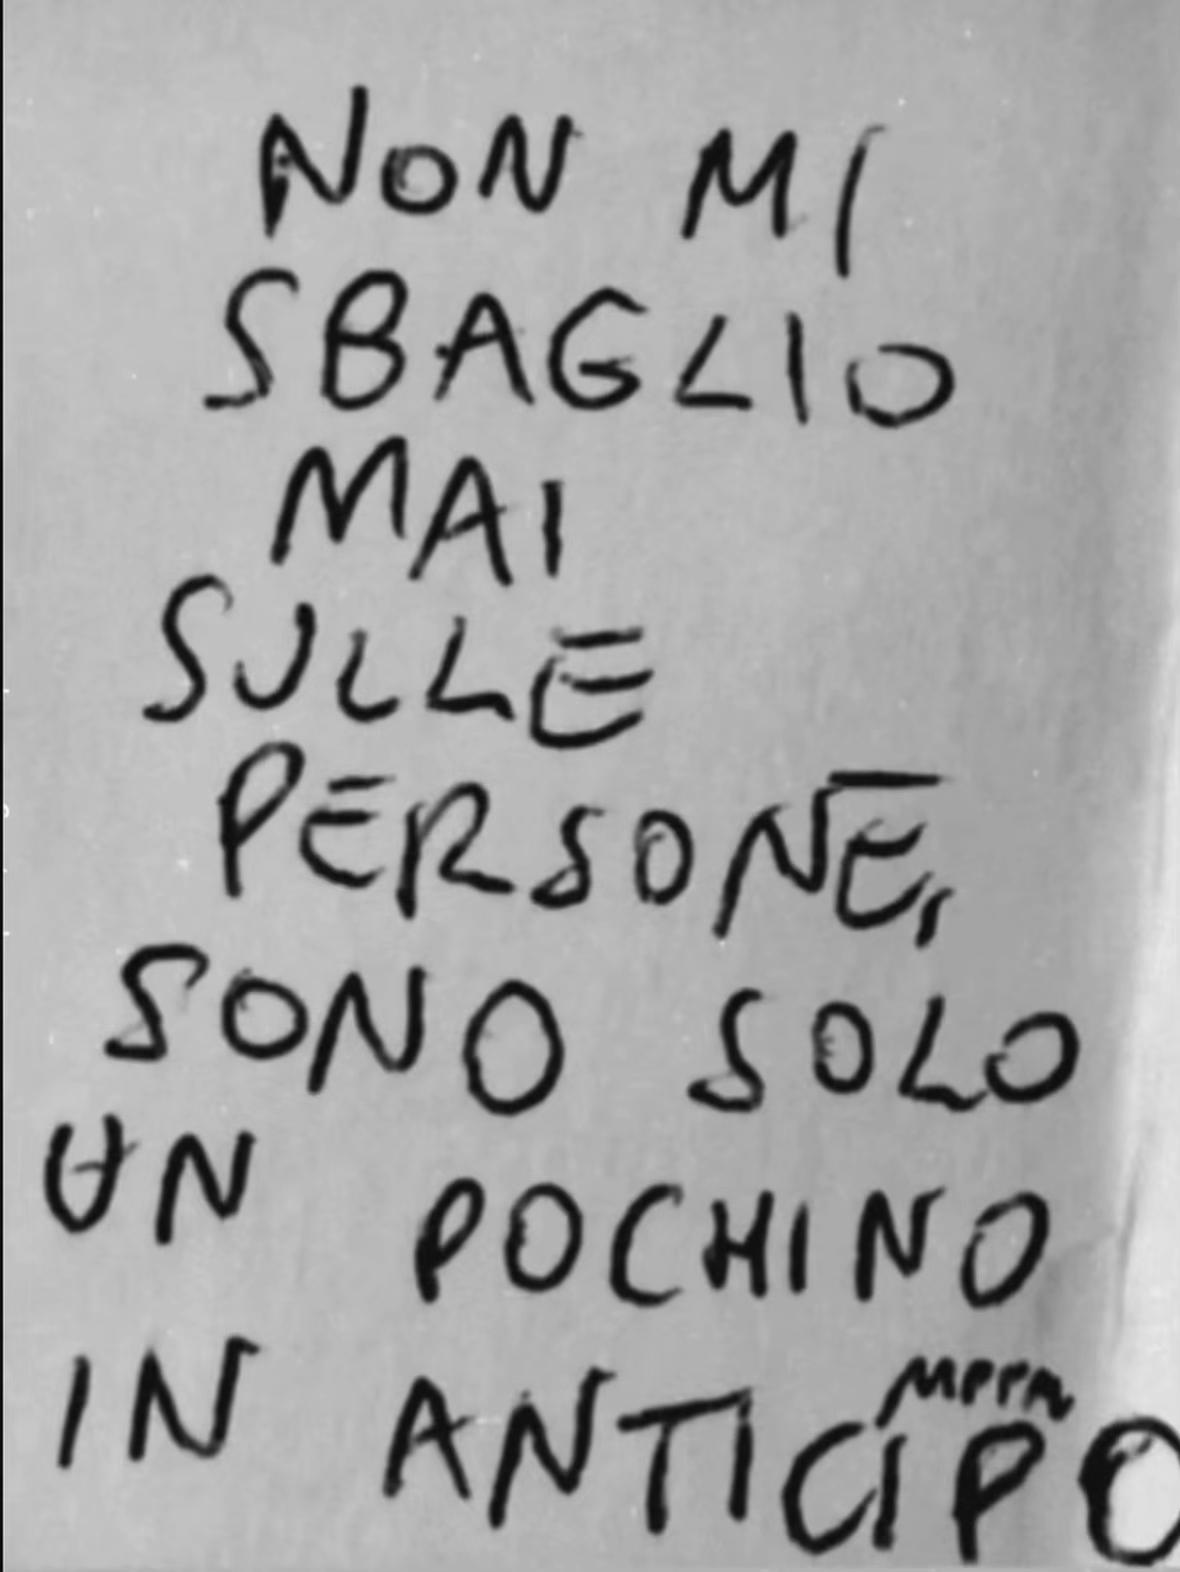 NON MI
SBAGLIO
MAI
SULLE
PERSONE,
SONO SOLO
UN POCHINO
IN ANTICIPO